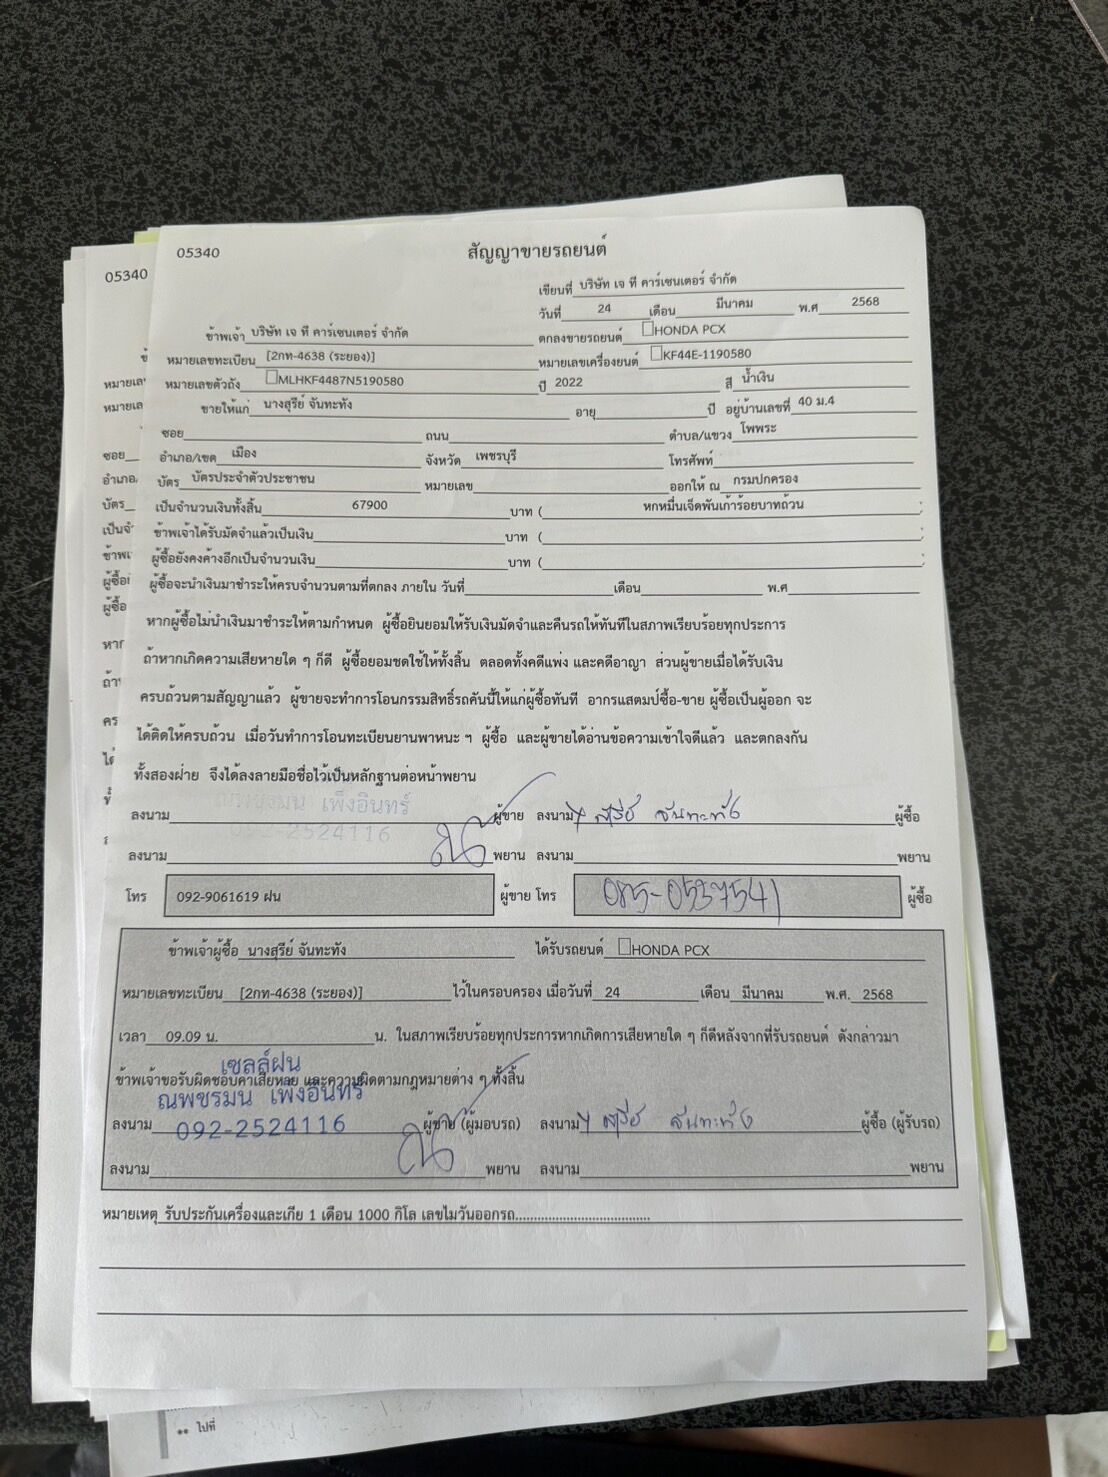 05340
สัญญาขายรถยนต์
เขียนที่ บริษัท เจ ที คาร์เซนเตอร์ จำกัด
วันที่ 24 เดือน มีนาคม พ.ศ 2568
ข้าพเจ้า บริษัท เจ ที คาร์เซนเตอร์ จำกัด ตกลงขายรถยนต์ HONDA PCX
หมายเลขทะเบียน [2กท-4638 (ระยอง)] หมายเลขเครื่องยนต์ KF44E-1190580
หมายเลขตัวถัง MLHKF4487N5190580 ปี 2022 สี น้ำเงิน
ขายให้แก่ นางสุรีย์ จันทะทัง อายุ ปี อยู่บ้านเลขที่ 40 ม.4
ซอย ถนน ตำบล/แขวง โพพระ
อำเภอ/เขต เมือง จังหวัด เพชรบุรี โทรศัพท์
บัตร บัตรประจำตัวประชาชน หมายเลข ออกให้ ณ กรมปกครอง
เป็นจำนวนเงินทั้งสิ้น 67900 บาท ( หกหมื่นเจ็ดพันเก้าร้อยบาทถ้วน
ข้าพเจ้าได้รับมัดจำแล้วเป็นเงิน บาท (
ผู้ซื้อยังคงค้างอีกเป็นจำนวนเงิน บาท (
ผู้ซื้อจะนำเงินมาชำระให้ครบจำนวนตามที่ตกลง ภายใน วันที่ เดือน พ.ศ
หากผู้ซื้อไม่นำเงินมาชำระให้ตามกำหนด ผู้ซื้อยินยอมให้รับเงินมัดจำและคืนรถให้ทันทีในสภาพเรียบร้อยทุกประการ
ถ้าหากเกิดความเสียหายใด ๆ ก็ดี ผู้ซื้อยอมชดใช้ให้ทั้งสิ้น ตลอดทั้งคดีแพ่ง และคดีอาญา ส่วนผู้ขายเมื่อได้รับเงิน
ครบถ้วนตามสัญญาแล้ว ผู้ขายจะทำการโอนกรรมสิทธิ์รถคันนี้ให้แก่ผู้ซื้อทันที อากรแสตมป์ซื้อ-ขาย ผู้ซื้อเป็นผู้ออก จะ
ได้ติดให้ครบถ้วน เมื่อวันทำการโอนทะเบียนยานพาหนะ ฯ ผู้ซื้อ และผู้ขายได้อ่านข้อความเข้าใจดีแล้ว และตกลงกัน
ทั้งสองฝ่าย จึงได้ลงลายมือชื่อไว้เป็นหลักฐานต่อหน้าพยาน
ณพชรมน เพ็งอินทร์
ลงนาม ผู้ขาย ลงนาม สุรีย์ จันทะทัง ผู้ซื้อ
092-2524116
ลงนาม พยาน ลงนาม พยาน
โทร 092-9061619 ฝน ผู้ขาย โทร 085-0537541 ผู้ซื้อ
ข้าพเจ้าผู้ซื้อ นางสุรีย์ จันทะทัง ได้รับรถยนต์ HONDA PCX
หมายเลขทะเบียน [2กท-4638 (ระยอง)] ไว้ในครอบครอง เมื่อวันที่ 24 เดือน มีนาคม พ.ศ. 2568
เวลา 09.09 น. น. ในสภาพเรียบร้อยทุกประการหากเกิดการเสียหายใด ๆ ก็ดีหลังจากที่รับรถยนต์ ดังกล่าวมา
เซลล์ฝน
ข้าพเจ้าขอรับผิดชอบค่าเสียหาย และความผิดตามกฎหมายต่าง ๆ ทั้งสิ้น
ณพชรมน เพ็งอินทร์
ลงนาม 092-2524116 ผู้ขาย (ผู้มอบรถ) ลงนาม สุรีย์ จันทะทัง ผู้ซื้อ (ผู้รับรถ)
ลงนาม พยาน ลงนาม พยาน
หมายเหตุ รับประกันเครื่องและเกีย 1 เดือน 1000 กิโล เลขไมวันออกรถ.....................................
05340
หมายเล
หมายเล
ซอย
อำเภอ
บัตร
เป็นจำ
ข้าพเ
ผู้ซื้อ
ผู้ซื้อ
หาก
ถ้า
คร
ได้
** ไปที่